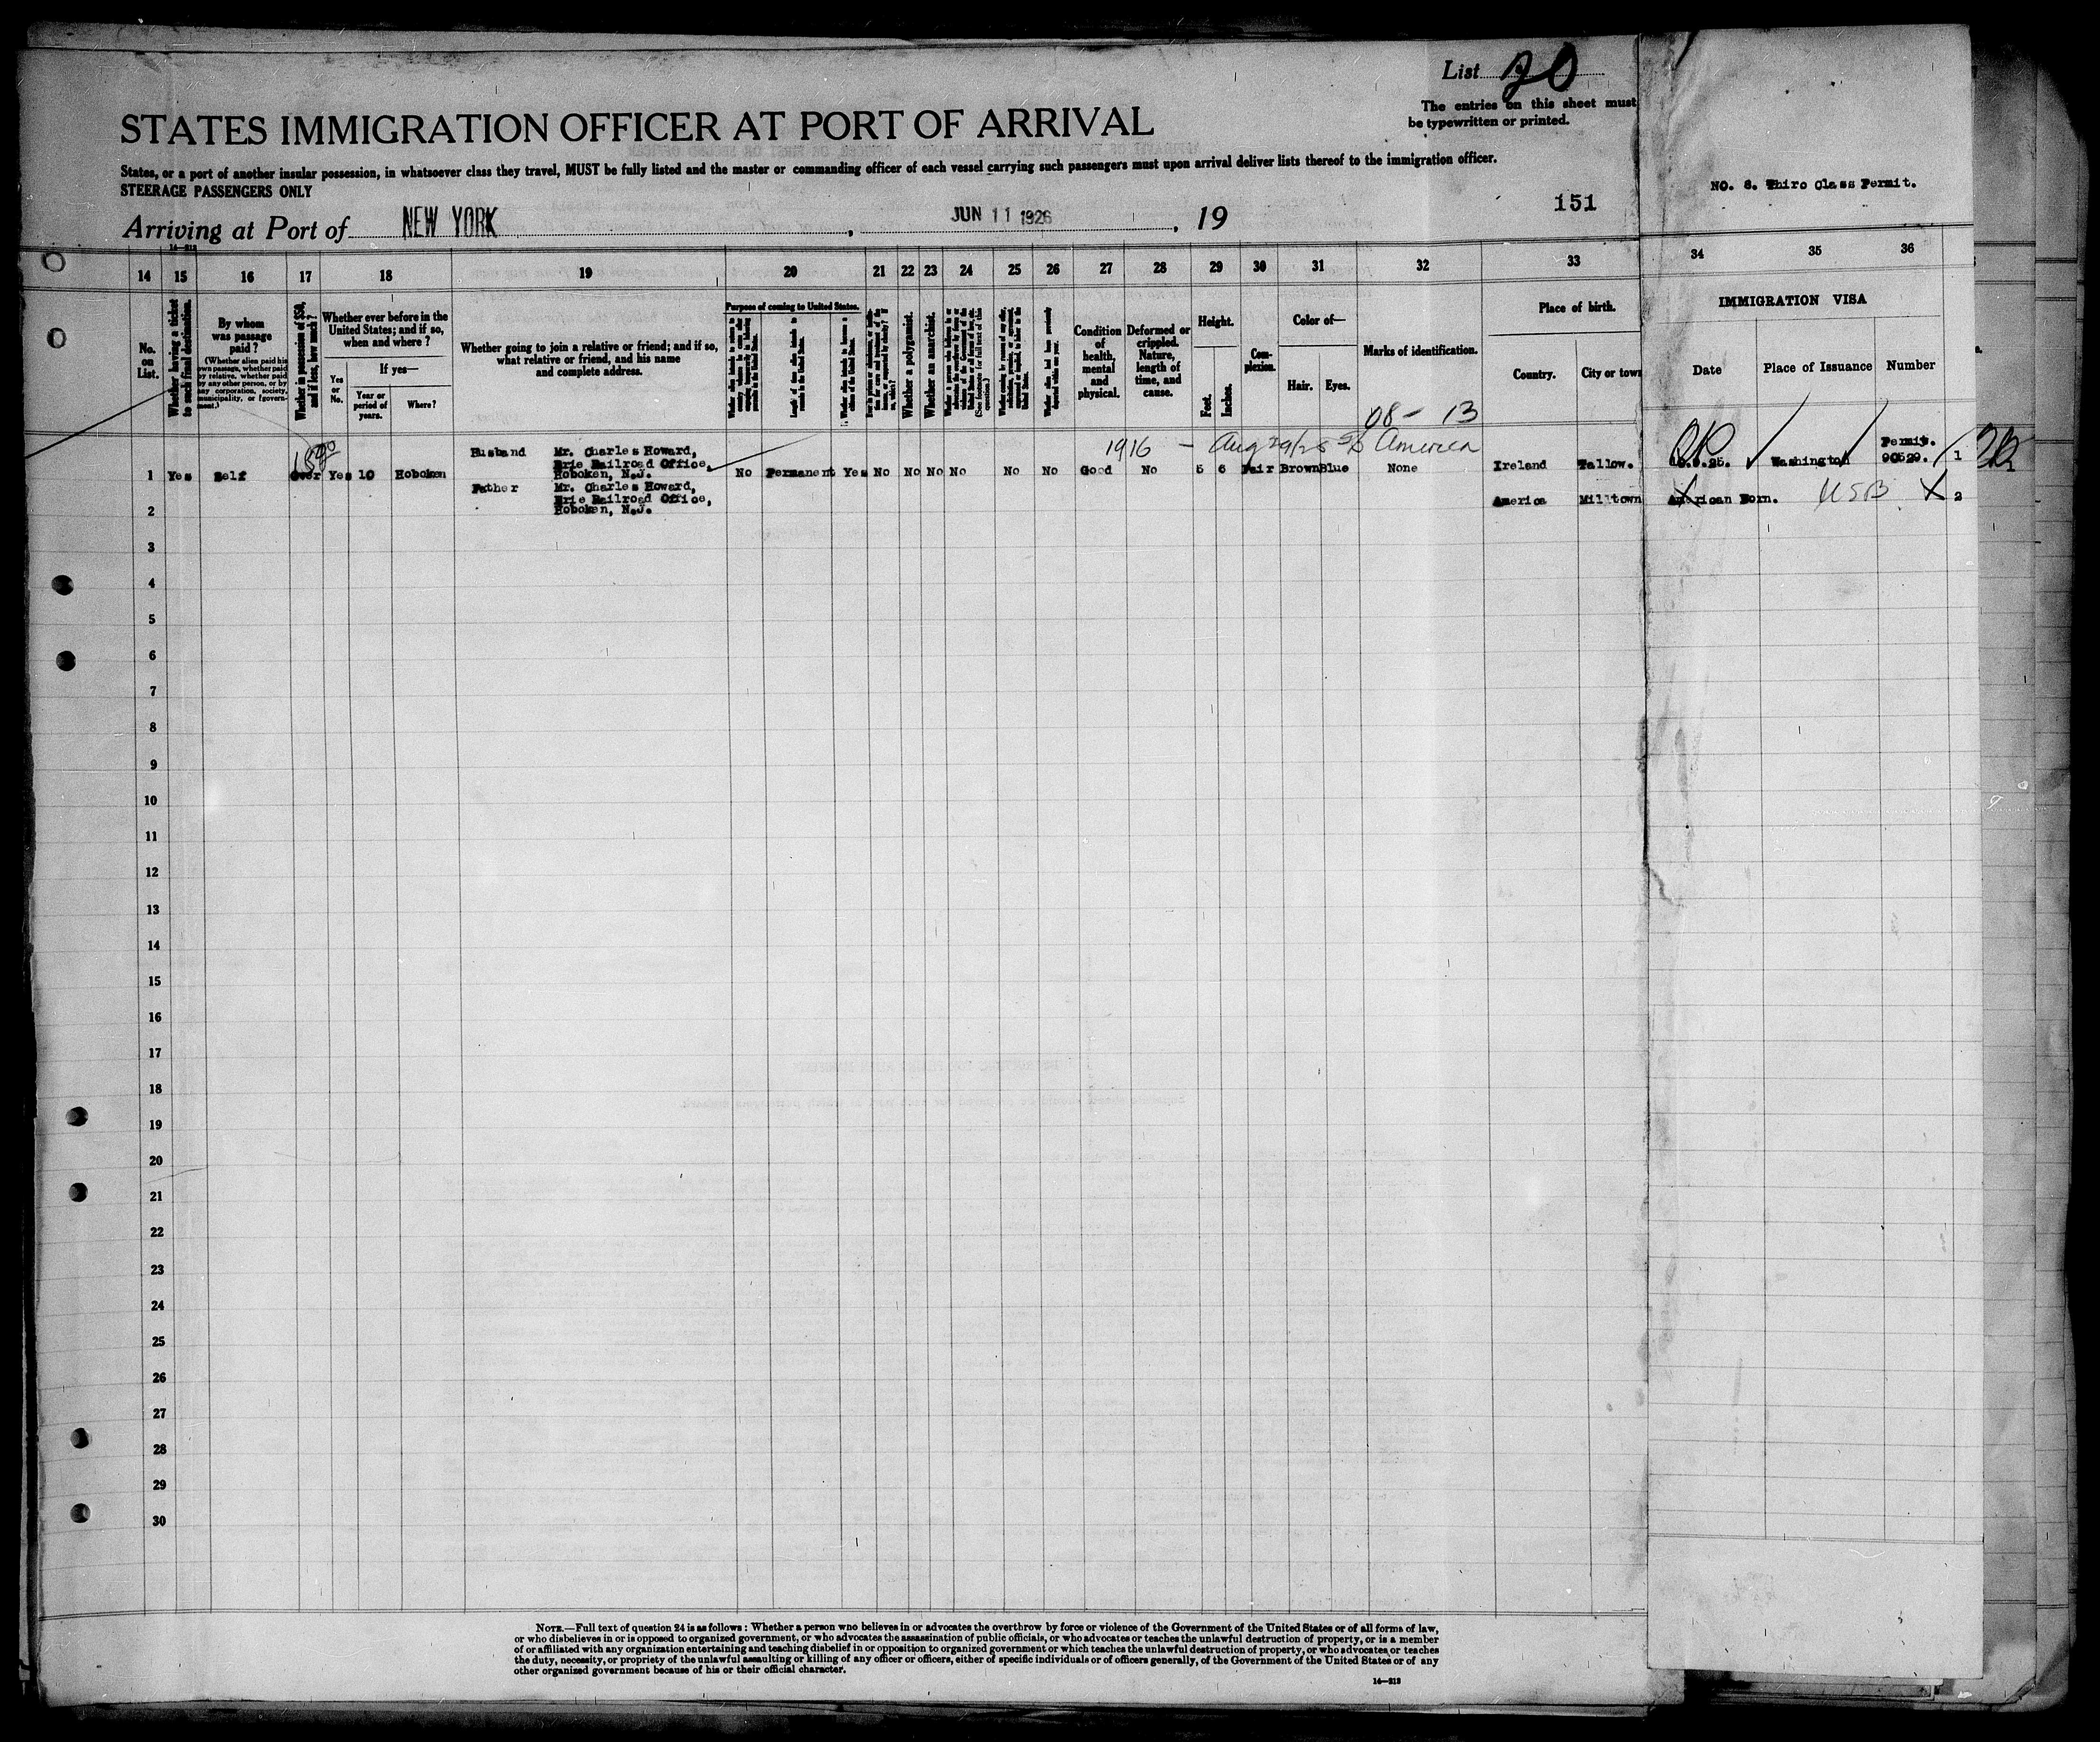 List 20
The entries on this sheet must
be typewritten or printed.
STATES IMMIGRATION OFFICER AT PORT OF ARRIVAL
States, or a port of another insular possession, in whatsoever class they travel, MUST be fully listed and the master or commanding officer of each vessel carrying such passengers must upon arrival deliver lists thereof to the immigration officer.
STEERAGE PASSENGERS ONLY
NO. 8. Third Class Permit.
151
Arriving at Port of NEW YORK, JUN 11 1926, 19
14 15 16 17 18 19 20 21 22 23 24 25 26 27 28 29 30 31 32 33 34 35 36
No. on List.
Whether having a ticket to such final destination.
By whom was passage paid?
(Whether alien paid his own passage, whether paid by relative, whether paid by any other person, or by any corporation, society, municipality, or government.)
Whether in possession of $50, and if less, how much?
Whether ever before in the United States; and if so, when and where?
Yes or No.
If yes—
Year or period of years.
Where?
Whether going to join a relative or friend; and if so, what relative or friend, and his name and complete address.
Purpose of coming to United States.
Length of time alien intends to remain in the United States.
Whether a polygamist.
Whether an anarchist.
Condition of health, mental and physical.
Deformed or crippled. Nature, length of time, and cause.
Height.
Feet. Inches.
Complexion.
Color of—
Hair. Eyes.
Marks of identification.
Place of birth.
Country. City or town
IMMIGRATION VISA
Date Place of Issuance Number
08- 13
1916 - Aug 29/25 SS America
Husband Mr. Charles Howard,
Erie Railroad Office,
Hoboken, N.J.
1 Yes Self Over Yes 10 Hoboken No Permanent Yes No No No No No No Good No 5 6 Fair Brown Blue None Ireland Tallow. Washington Permit. 90529. 1
Father Mr. Charles Howard,
Erie Railroad Office,
Hoboken, N.J.
2 America Milltown American Born. USB X 2
3
4
5
6
7
8
9
10
11
12
13
14
15
16
17
18
19
20
21
22
23
24
25
26
27
28
29
30
NOTE.—Full text of question 24 is as follows: Whether a person who believes in or advocates the overthrow by force or violence of the Government of the United States or of all forms of law,
or who disbelieves in or is opposed to organized government, or who advocates the assassination of public officials, or who advocates or teaches the unlawful destruction of property, or is a member
of or affiliated with any organization entertaining and teaching disbelief in or opposition to organized government or which teaches the unlawful destruction of property, or who advocates or teaches
the duty, necessity, or propriety of the unlawful assaulting or killing of any officer or officers, either of specific individuals or of officers generally, of the Government of the United States or of any
other organized government because of his or their official character.
14—212